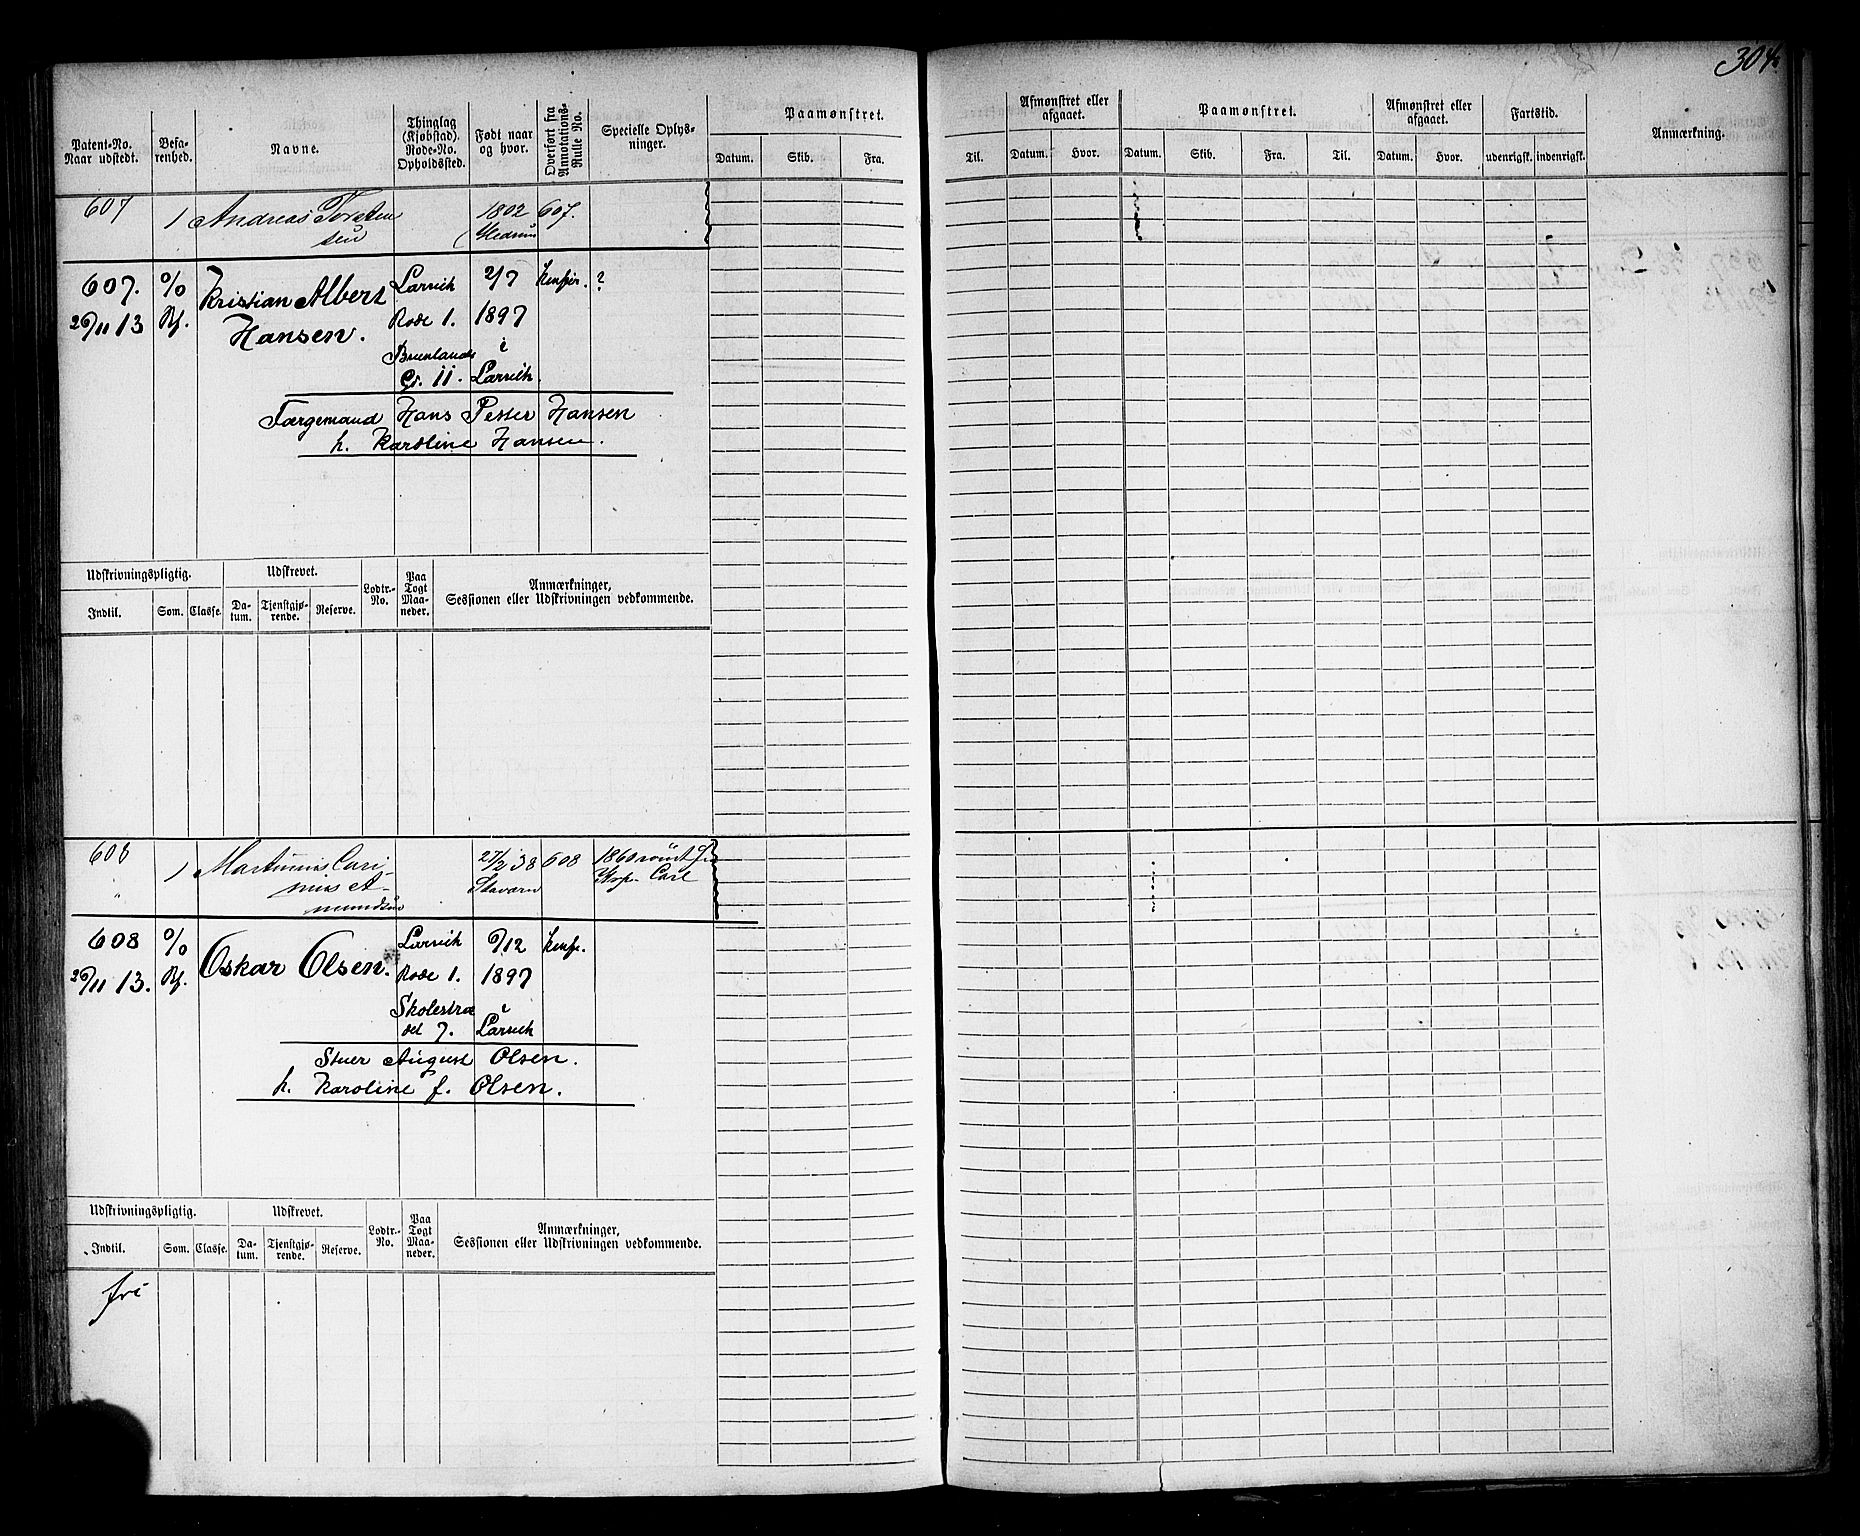 304
Patent-No. Naar udstedt.
Befarenhed.
Navne.
Thinglag (Kjøbstad). Rode-No. Opholdssted.
Født naar og hvor.
Overført fra Annotations-Rulle No.
Specielle Oplysninger.
Paamønstret.
Datum. Skib. Fra.
Til.
Afmønstret eller afgaaet.
Datum. Hvor.
Paamønstret.
Datum. Skib. Fra. Til.
Afmønstret eller afgaaet.
Datum. Hvor.
Fartstid.
udenrigsk. indenrigsk.
Anmærkning.
607 1 Andreas Torsten 1802 607.
sen Hedrum
607. % Kristian Albert Larvik 2/7 ?
26/11 13 Hansen. Rode 1. 1897
Brunlands i
Gr. 11. Larvik.
Færgemand Hans Petter Hansen
h. Karoline Hansen.
Udskrivningspligtig. Udskrevet. Lodtr.-No. Paa Togt Maaneder. Anmærkninger, Sessionen eller Udskrivningen vedkommende.
Indtil. Som. Classe. Datum. Tjenstgjørende. Reserve.
608 1 Martinius Cari 27/2 38 608 1860 rømt fr
nius A- Stavern Carl
mundsen
608 % Oskar Olsen. Larvik 6/12
26/11 13. Rode 1. 1897
Skolestræ i
det 7. Larvik
Stuer August Olsen.
h. Karoline f. Olsen.
Udskrivningspligtig. Udskrevet. Lodtr.-No. Paa Togt Maaneder. Anmærkninger, Sessionen eller Udskrivningen vedkommende.
Indtil. Som. Classe. Datum. Tjenstgjørende. Reserve.
fri